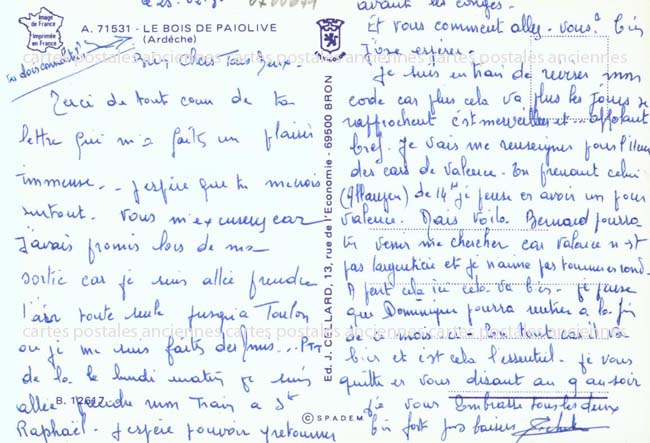 Image
de France
Imprimée
en France
A. 71531 - LE BOIS DE PAIOLIVE
(Ardèche)
cartes postales anciennes
Chers Tous deux.
Merci de tout coeur de ta
lettre qui m'a faits un plaisir
immense.. j'espère que tu me crois
surtout. Vous m'excuserez car
J'avais promis lors de ma
sortie car je suis allée prendre
l'air toute seule jusqu'à Toulon
cartes postales anciennes
ou je me suis faits des amis...
de là le lundi matin je suis
allée prendre mon train a St
B. 12617
Raphaël. J'espère pouvoir y retourner
Ed. J. CELLARD, 13, rue de l'Economie - 69500 BRON
© S.P.A.D.E.M.
avant les congés.
Et vous comment allez-vous? bien
J'ose espérer.
cartes postales anciennes
Je suis en train de reviser mon
code car plus cela va plus les jours se
rapprochent c'est merveilleux et affolant
bref. Je vais me renseigner pour l'heure
des cars de Valence. En prenant celui
de 14h je pense en avoir un pour
Valence. Mais voilà. Bernard pourra
tu venir me chercher car Valence n'est
pas Largentière et je n'aime pas tourner en rond.
A part cela ici cela va bien. je pense
que Dominique pourra rentrer a la fin
cartes postales anciennes
de ce mois ci. En tout cas il va
bien et est cela l'essentiel. je vous
quitte en vous disant au 9 au soir
je vous embrasse tous les deux
bien fort gros baisers